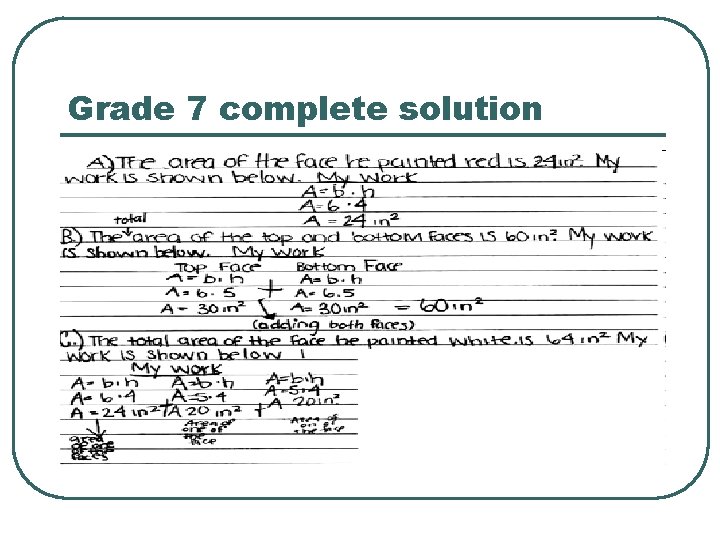 Grade 7 complete solution
A) The area of the face he painted red is 24in². My
work is shown below. My work
A=b·h
A=6·4
A = 24 in²
total
B) The area of the top and bottom faces is 60in². My work
is shown below. My work
Top Face Bottom Face
A=b·h + A=b·h
A=6·5 A=6.5
A= 30in² A= 30in² = 60in²
(adding both faces)
C.) The total area of the face he painted white is 64in² My
work is shown below
My work
A=b·h A=b·h A=b·h
A=6·4 A=5·4 A=5·4
A=24 in² + A 20 in² + A 20in²
Area of one of the face
Area of one of the face
area of one faces